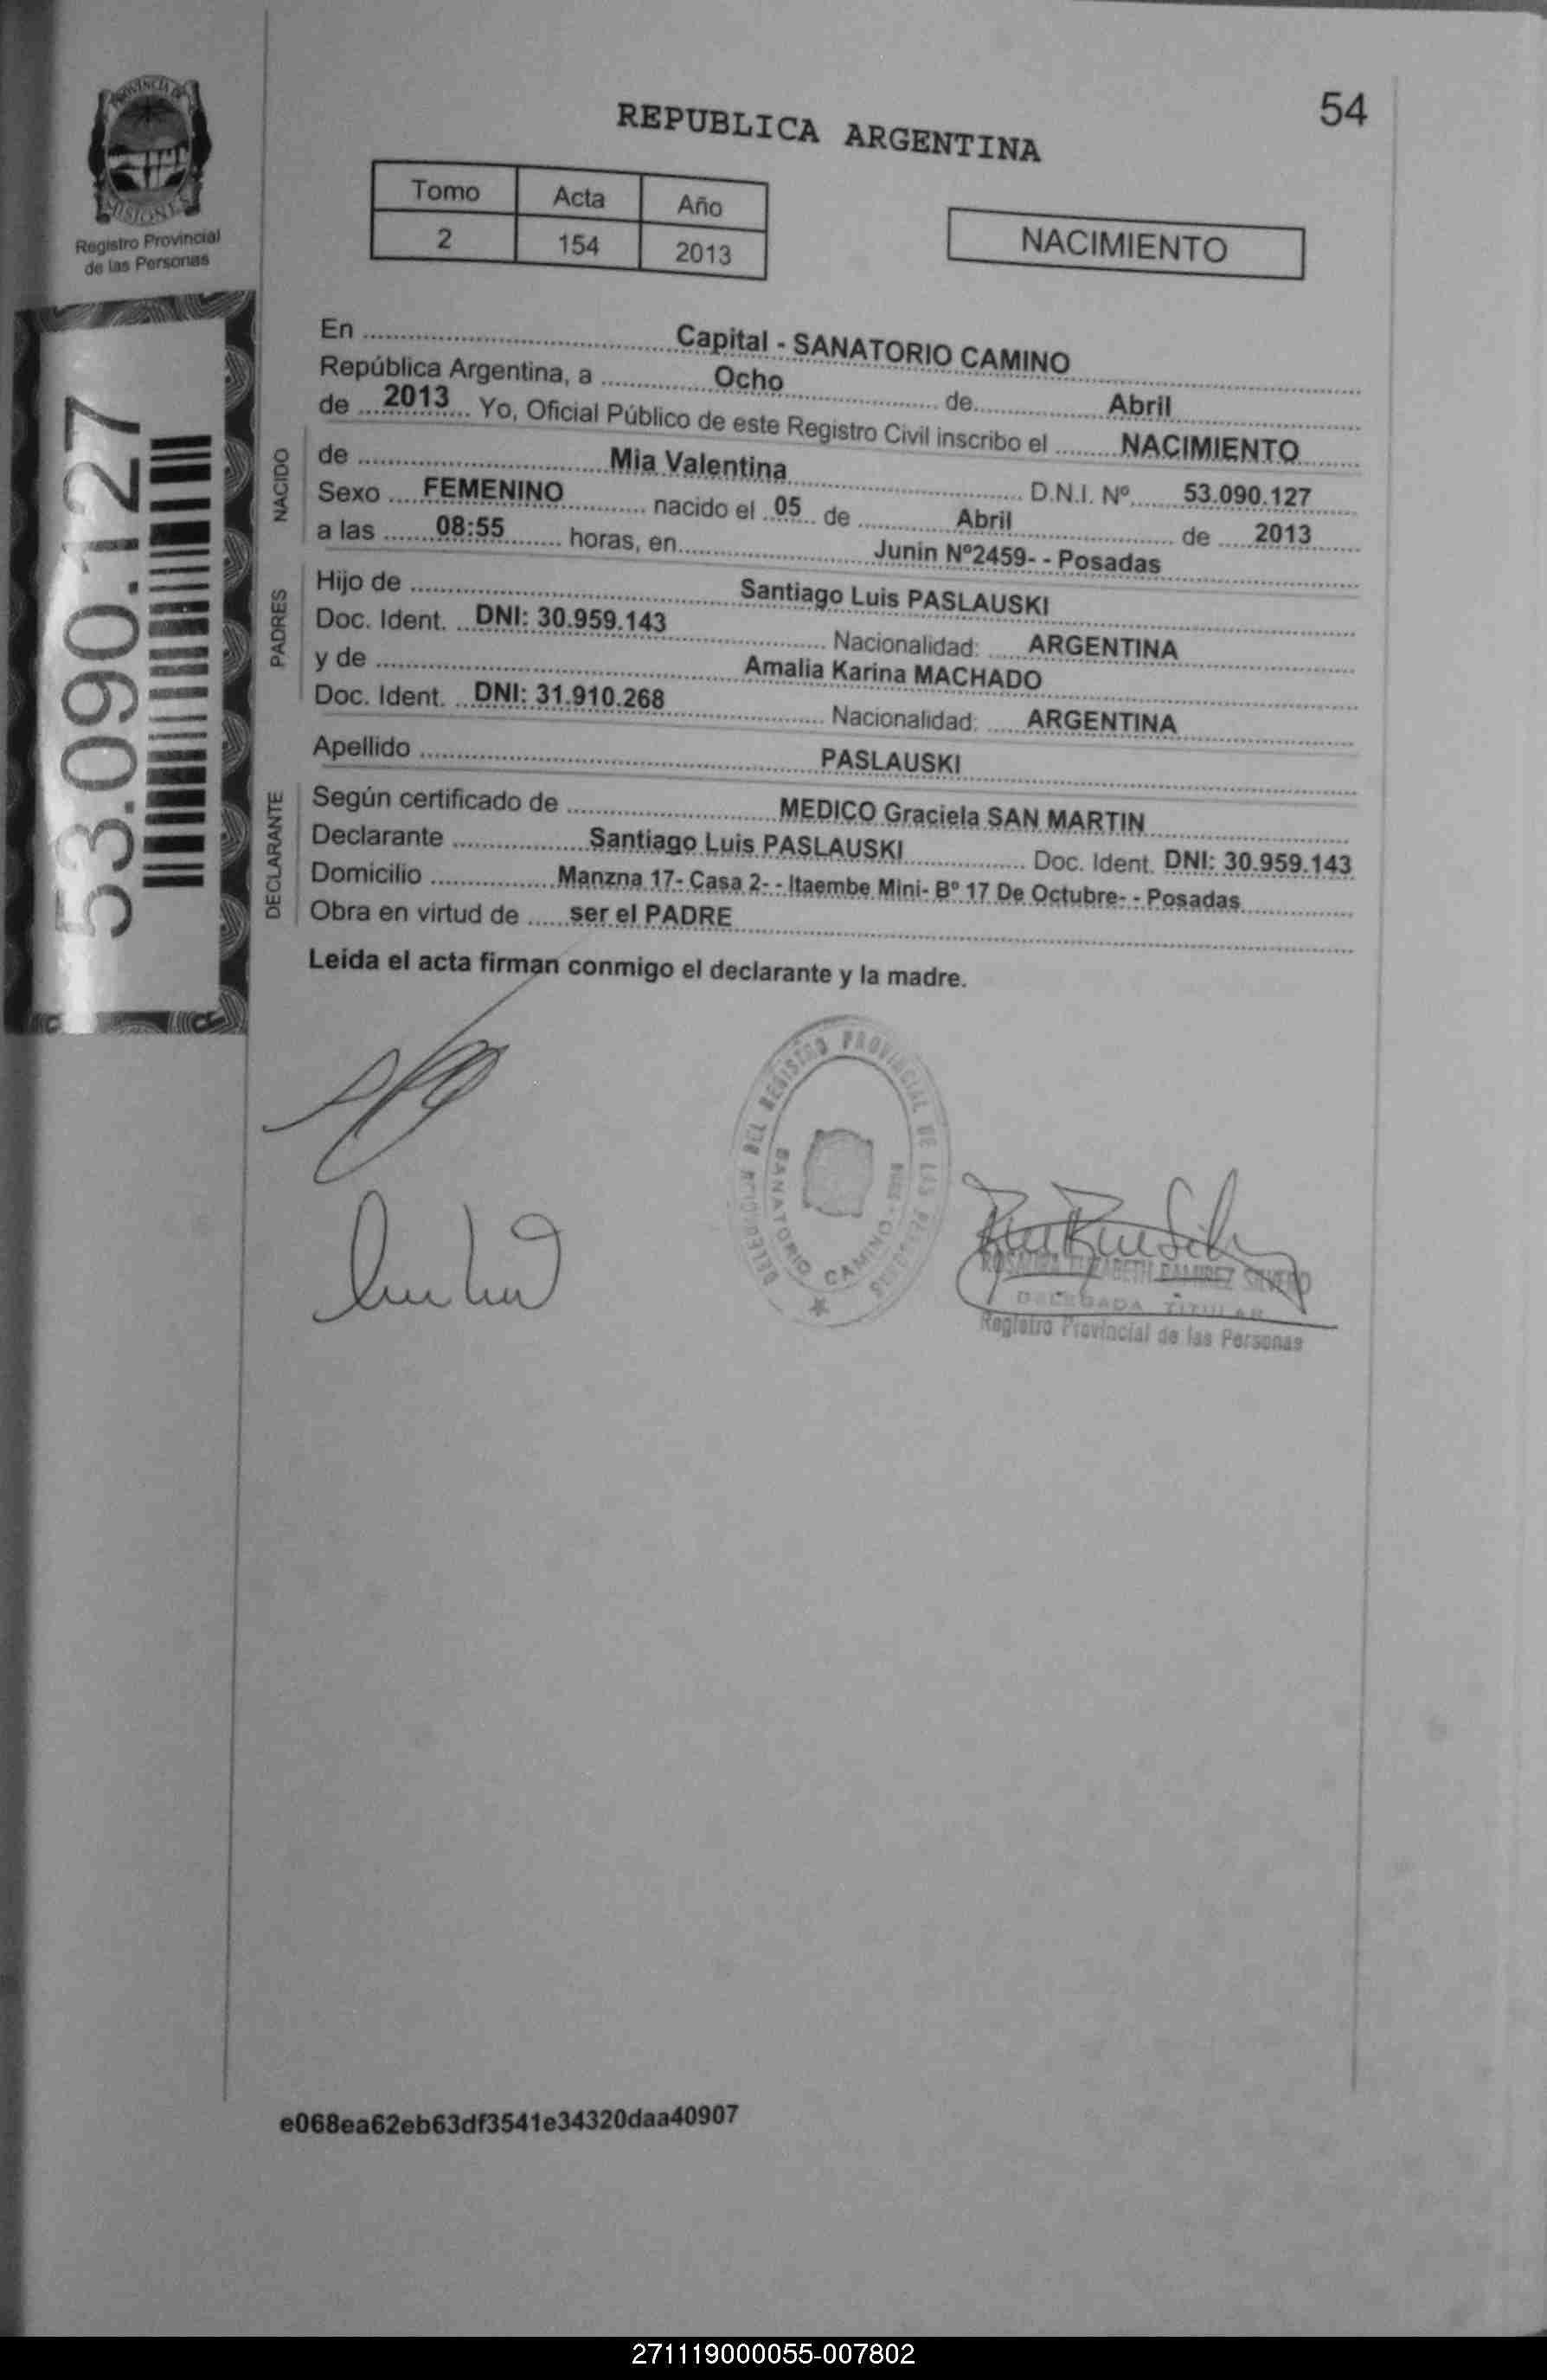 PROVINCIA DE
MISIONES
Registro Provincial
de las Personas
54
REPUBLICA ARGENTINA
Tomo Acta Año
2 154 2013
NACIMIENTO
53.090.127
En Capital - SANATORIO CAMINO
República Argentina, a Ocho de Abril
de 2013 Yo, Oficial Público de este Registro Civil inscribo el NACIMIENTO
NACIDO
de Mia Valentina D.N.I. Nº 53.090.127
Sexo FEMENINO nacido el 05 de Abril de 2013
a las 08:55 horas, en Junin Nº2459- - Posadas
PADRES
Hijo de Santiago Luis PASLAUSKI
Doc. Ident. DNI: 30.959.143 Nacionalidad: ARGENTINA
y de Amalia Karina MACHADO
Doc. Ident. DNI: 31.910.268 Nacionalidad: ARGENTINA
Apellido PASLAUSKI
DECLARANTE
Según certificado de MEDICO Graciela SAN MARTIN
Declarante Santiago Luis PASLAUSKI Doc. Ident. DNI: 30.959.143
Domicilio Manzna 17- Casa 2- - Itaembe Mini- Bº 17 De Octubre- - Posadas
Obra en virtud de ser el PADRE
Leida el acta firman conmigo el declarante y la madre.
DEL REGISTRO PROVINCIAL DE LAS PERSONAS
SANATORIO CAMINO
ELIZABETH RAMIREZ SILVERO
DELEGADA TITULAR
Registro Provincial de las Personas
e068ea62eb63df3541e34320daa40907
271119000055-007802